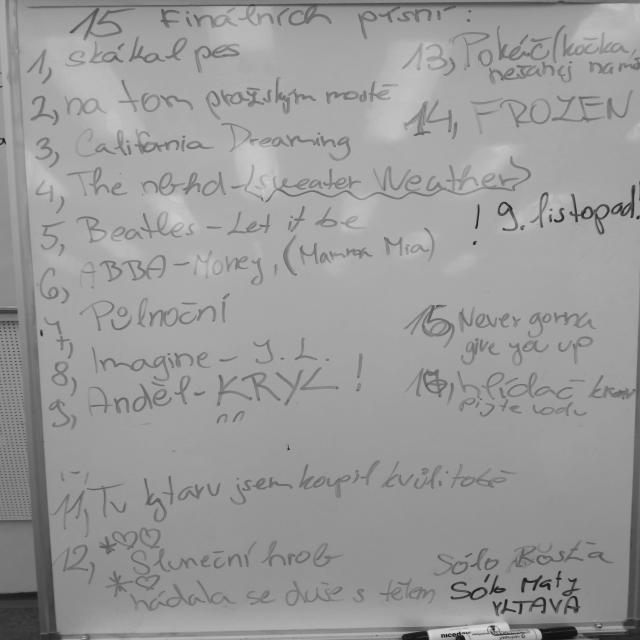 15 Finálních písní:
1, skákal pes
2, na tom pražským mostě
3, California Dreaming
4, The nbhd - (Sweater Weather)
5, Beatles - Let it be
6, ABBA - Money, (Mamma Mia)
7, Půlnoční
8, Imagine - J. L.
9, Anděl - KRYL !
11, Tu kytaru jsem koupil kvůli tobě
12, Sluneční hrob
hádala se duše s tělem
13, Pokáč/kočka,
nesahej na
14, FROZEN
! 9. listopad!
15, Never gonna
give you up
16, hlídač krav
pijte vodu
Sólo
Sólo Maty
VLTAVA